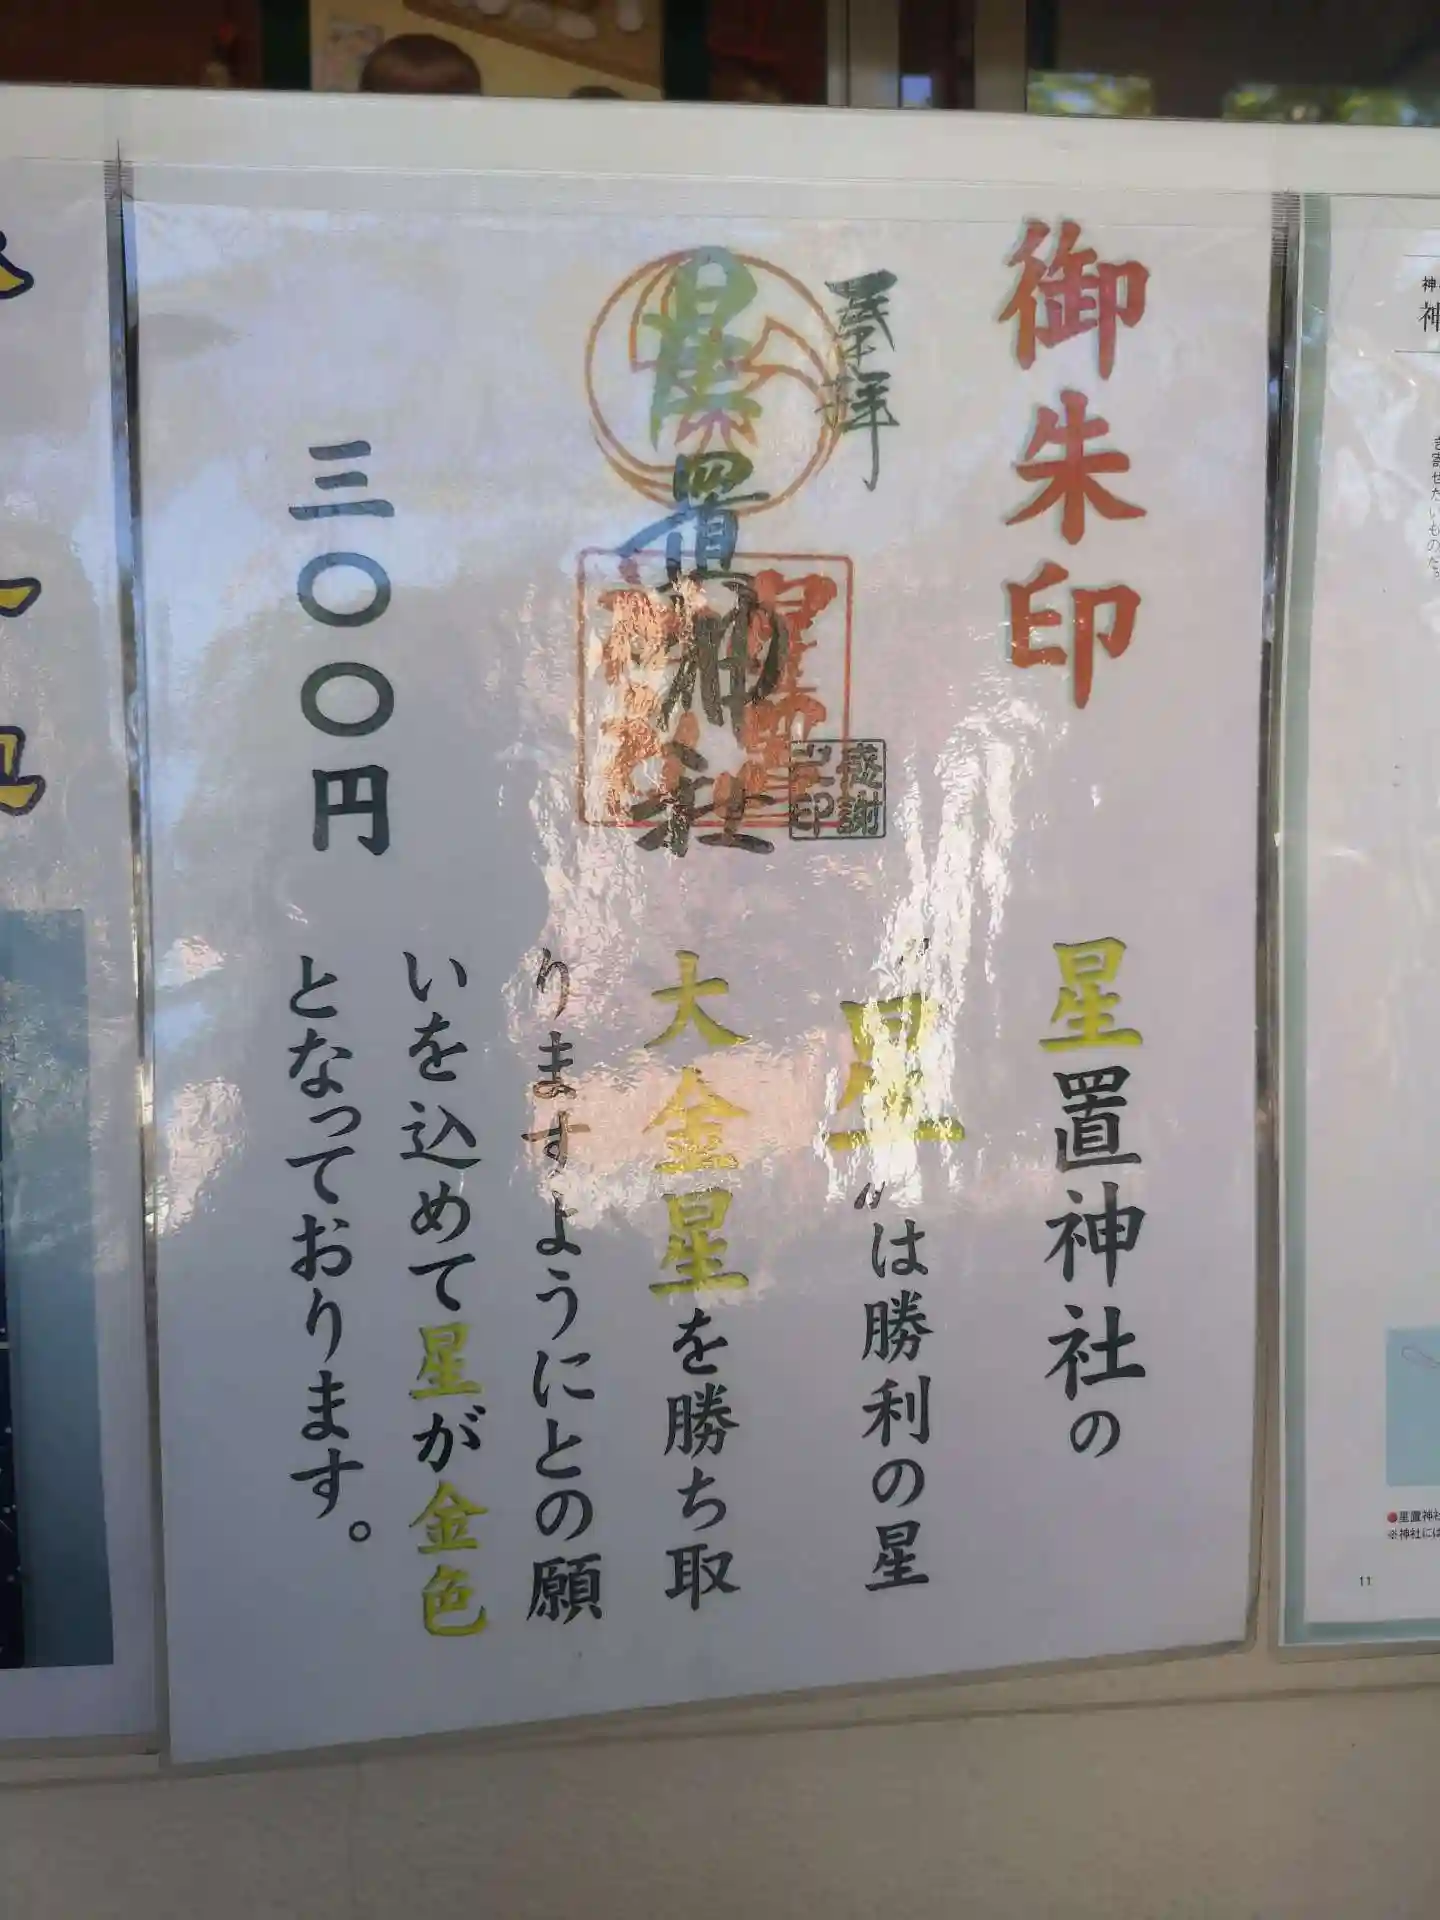 御朱印
奉拝
星置神社
感謝
三〇〇円
星置神社の
〝星〟は勝利の星
大金星を勝ち取
りますようにとの願
いを込めて星が金色
となっております。
き寄せたいものだ。
●星置神社
※神社には
11